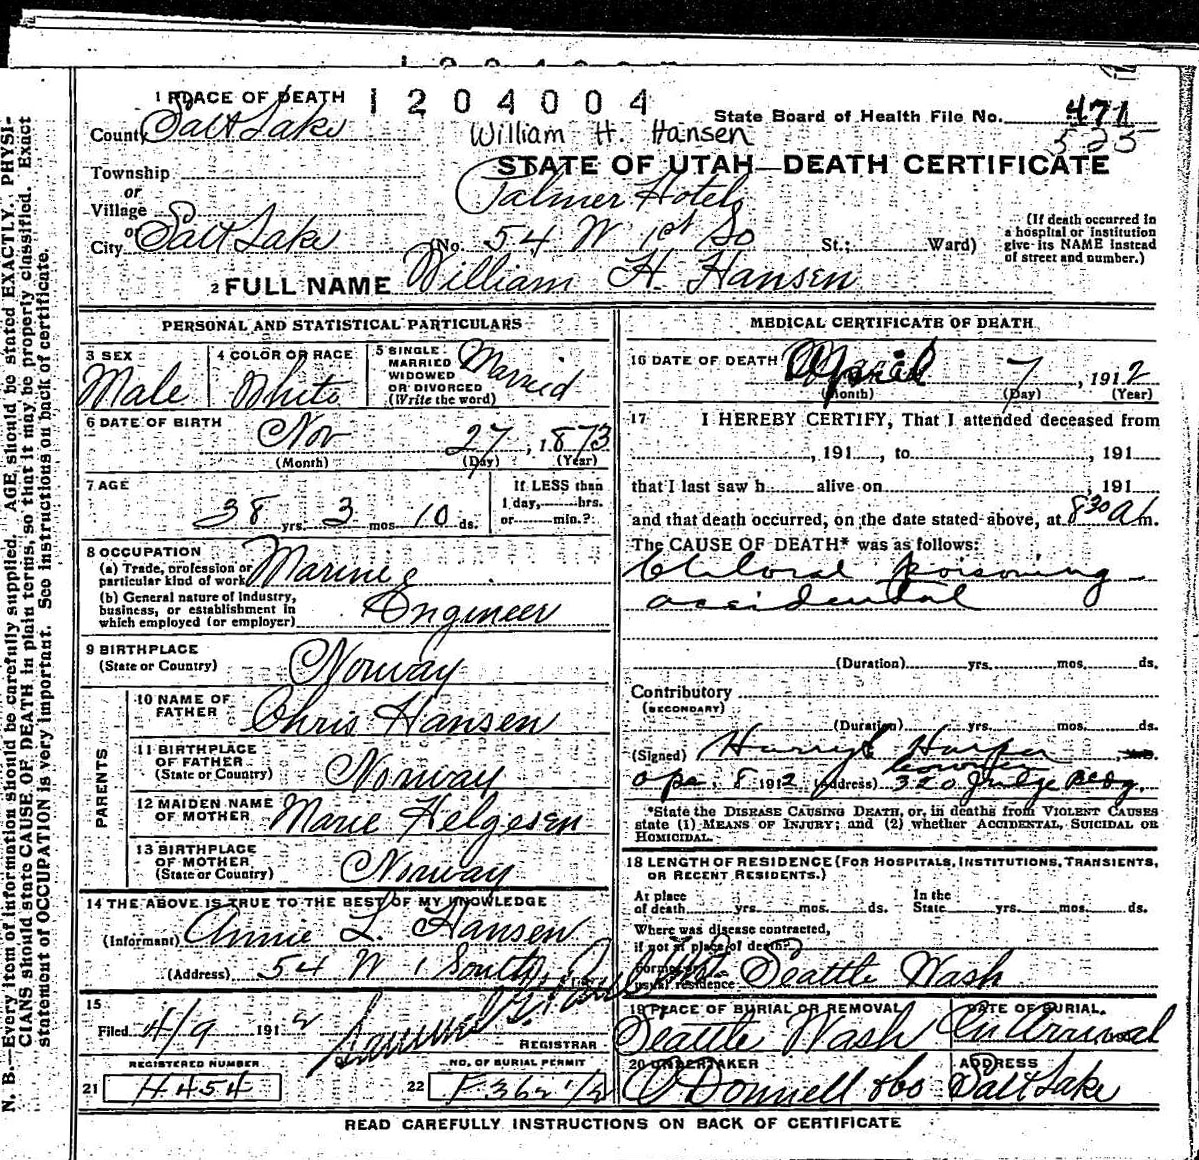 1204004
1 PLACE OF DEATH
County Salt Lake
William H. Hansen
State Board of Health File No. 471
525
STATE OF UTAH—DEATH CERTIFICATE
Township
or
Village
or
City Salt Lake
Palmer Hotel
(No. 54 W 1st So St.; Ward)
(If death occurred in
a hospital or institution
give its NAME instead
of street and number.)
2 FULL NAME William H. Hansen
PERSONAL AND STATISTICAL PARTICULARS
3 SEX
Male
4 COLOR OR RACE
White
5 SINGLE
MARRIED
WIDOWED
OR DIVORCED
(Write the word)
Married
6 DATE OF BIRTH
Nov 27, 1873
(Month) (Day) (Year)
7 AGE
38 yrs. 3 mos. 10 ds.
If LESS than
1 day, hrs.
or min.?
8 OCCUPATION
(a) Trade, profession or
particular kind of work Marine
(b) General nature of industry,
business, or establishment in
which employed (or employer) Engineer
9 BIRTHPLACE
(State or Country)
Norway
PARENTS
10 NAME OF
FATHER
Chris Hansen
11 BIRTHPLACE
OF FATHER
(State or Country)
Norway
12 MAIDEN NAME
OF MOTHER
Marie Helgesen
13 BIRTHPLACE
OF MOTHER
(State or Country)
Norway
14 THE ABOVE IS TRUE TO THE BEST OF MY KNOWLEDGE
(Informant) Annie L. Hansen
(Address) 54 W 1 South
15
Filed 4/9 1912
REGISTRAR
REGISTERED NUMBER
21 H454
NO. OF BURIAL PERMIT
22
MEDICAL CERTIFICATE OF DEATH
16 DATE OF DEATH
April 7, 1912
(Month) (Day) (Year)
17 I HEREBY CERTIFY, That I attended deceased from
, 191 , to , 191
that I last saw h alive on , 191
and that death occurred, on the date stated above, at 8 30 A m.
The CAUSE OF DEATH* was as follows:
Chloral poisoning
accidental
(Duration) yrs. mos. ds.
Contributory
(SECONDARY)
(Duration) yrs. mos. ds.
(Signed) Harry Harper
Coroner
8 1912 (Address) 320 Judge Bldg.
*State the DISEASE CAUSING DEATH, or, in deaths from VIOLENT CAUSES
state (1) MEANS OF INJURY; and (2) whether ACCIDENTAL, SUICIDAL OR
HOMICIDAL.
18 LENGTH OF RESIDENCE (FOR HOSPITALS, INSTITUTIONS, TRANSIENTS,
OR RECENT RESIDENTS.)
At place
of death yrs. mos. ds.
In the
State yrs. mos. ds.
Where was disease contracted,
if not at place of death?
Former or
usual residence Seattle Wash
19 PLACE OF BURIAL OR REMOVAL
Seattle Wash
DATE OF BURIAL.
On Arrival
20 UNDERTAKER
O'Donnell & Co
ADDRESS
Salt Lake
READ CAREFULLY INSTRUCTIONS ON BACK OF CERTIFICATE
N. B.—Every item of information should be carefully supplied. AGE should be stated EXACTLY. PHYSI-
CIANS should state CAUSE OF DEATH in plain terms, so that it may be properly classified. Exact
statement of OCCUPATION is very important. See instructions on back of certificate.